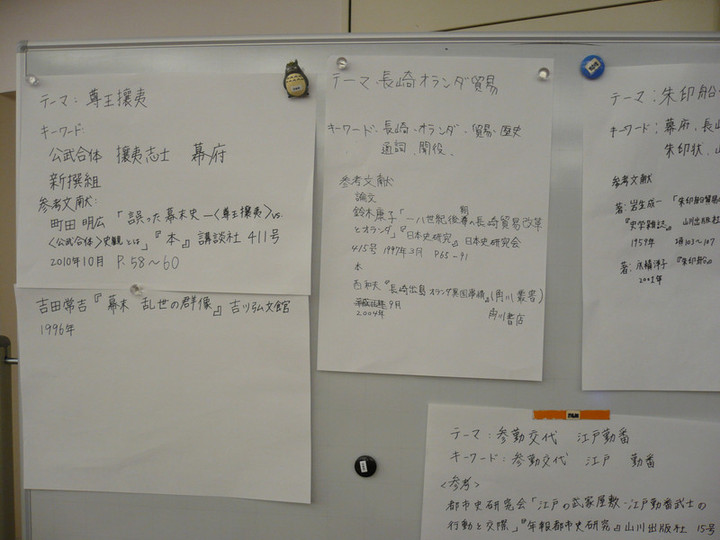 テーマ：尊王攘夷
キーワード：
公武合体 攘夷志士 幕府
新撰組
参考文献：
町田 明広「誤った幕末史―〈尊王攘夷〉vs.
〈公武合体〉史観とは」『本』講談社 411号
2010年10月 P.58〜60
吉田常吉『幕末 乱世の群像』吉川弘文館
1996年
テーマ・長崎オランダ貿易
キーワード・長崎・オランダ・貿易・歴史
通詞、聞役、
参考文献
論文
鈴木康子「一八世紀後期の長崎貿易改革
とオランダ」『日本史研究』日本史研究会
415号 1997年3月 P65-91
本
西和夫『長崎出島オランダ異国事情』(角川叢書)
9月
2004年 角川書店
テーマ：朱印船
キーワード：幕府、長
朱印状、
参考文献
著：岩生成一「朱印船貿易
『史学雑誌』山川出版社
1959年 頁103〜107
著：永積洋子『朱印船』
2001年
テーマ：参勤交代 江戸勤番
キーワード：参勤交代 江戸 勤番
<参考>
都市史研究会「江戸の武家屋敷-江戸勤番武士の
行動と交際」『年報都市史研究』山川出版社 15号